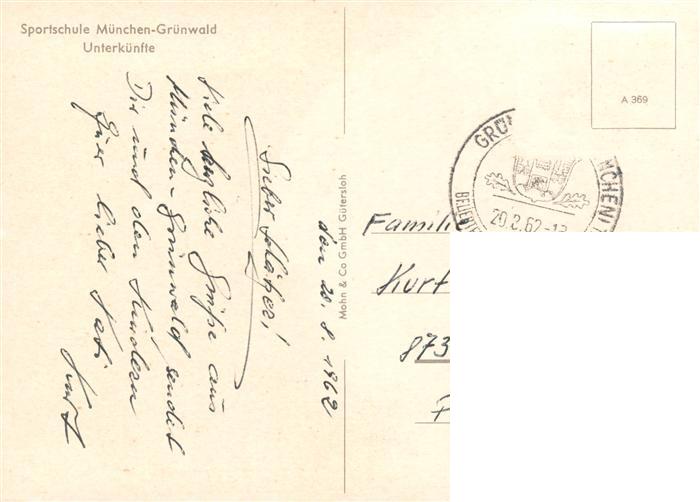 Sportschule München-Grünwald
Unterkünfte
den 20. 8. 1962
Viele herzliche Grüße aus
München-Grünwald sendet
Dir und den Kindern
Euer lieber Vati
Kurt
Mohn & Co GmbH Gütersloh
A 369
GRÜN
MCHEN
20.8.62-18
Famili
Kurt
873